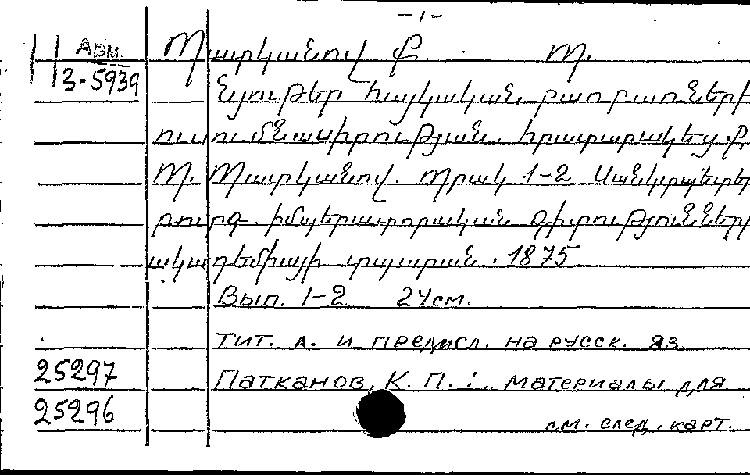 -1-
Арм. Պատկանով Ք. Պ.
3-5939 Նյութեր հայկական բառբառների
ուսումնասիրության. հրատարակեց Ք.
Պ. Պատկանով. Պրակ 1-2 Սանկտպետեր
բուրգ. իմպերատորական գիտություններ
ակադեմիայի տպարան. 1875
Вып. 1-2 24см.
Тит. л. и предисл. на русск. яз
25297 Патканов, К. П.: материалы для
25296 см. след. карт.